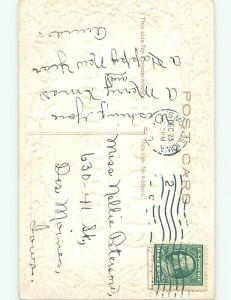 POST CARD
This side for Correspondence
This side for Address
DEC 23
Wishing You
A Merry Xmas
and
A Happy New Year
Anna.
Miss Nellie Peterson,
630-41 St,
Des Moines,
Iowa.